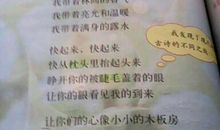 我带着亮光和温暖
我带着满身的露水
快起来，快起来
快从枕头里抬起头来
睁开你的被睫毛盖着的眼
让你的眼看见我的到来
让你们的心像小小的木板房
我发现了现
古诗的不同之处